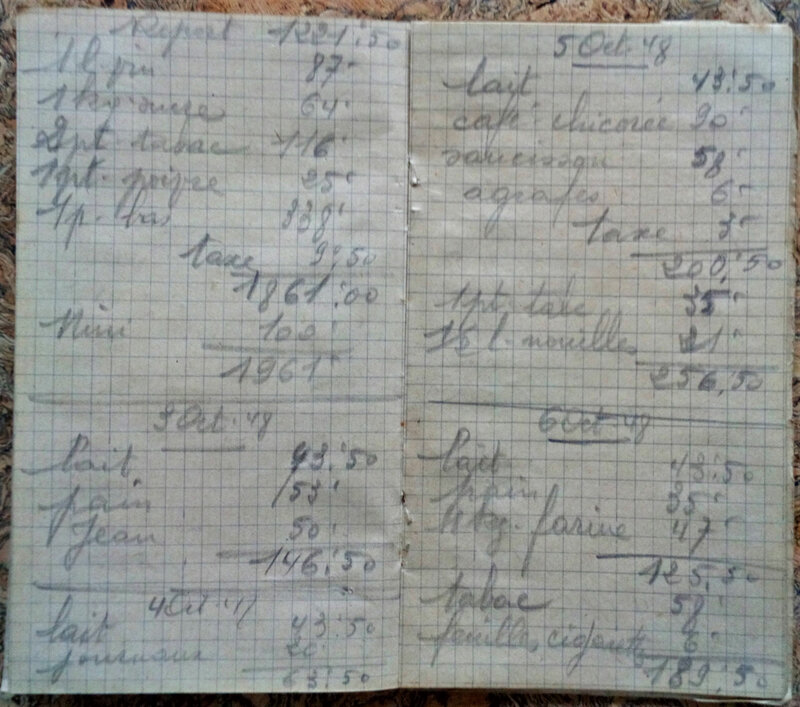 Report 1221:50
1 l. vin 87-
1 kg. sucre 64-
2 pt. tabac 116-
1 pt. poivre 25-
1 p. bas 338-
taxe 9:50
1861:00
Nini 100-
1961-
3 Oct. 48
lait 43:50
pain 53-
Jean 50-
146:50
4 Oct. 48
lait 43:50
journaux 20-
63:50
5 Oct. 48
lait 43:50
café chicorée 90-
saucisson 58-
agrafes 6-
taxe 3-
200,50
1 pt. 35-
l. nouilles 21-
256,50
6 Oct. 48
lait 43:50
pain 35-
kg. farine 47-
125,50
tabac 58-
feuilles cigarette 6-
189,50